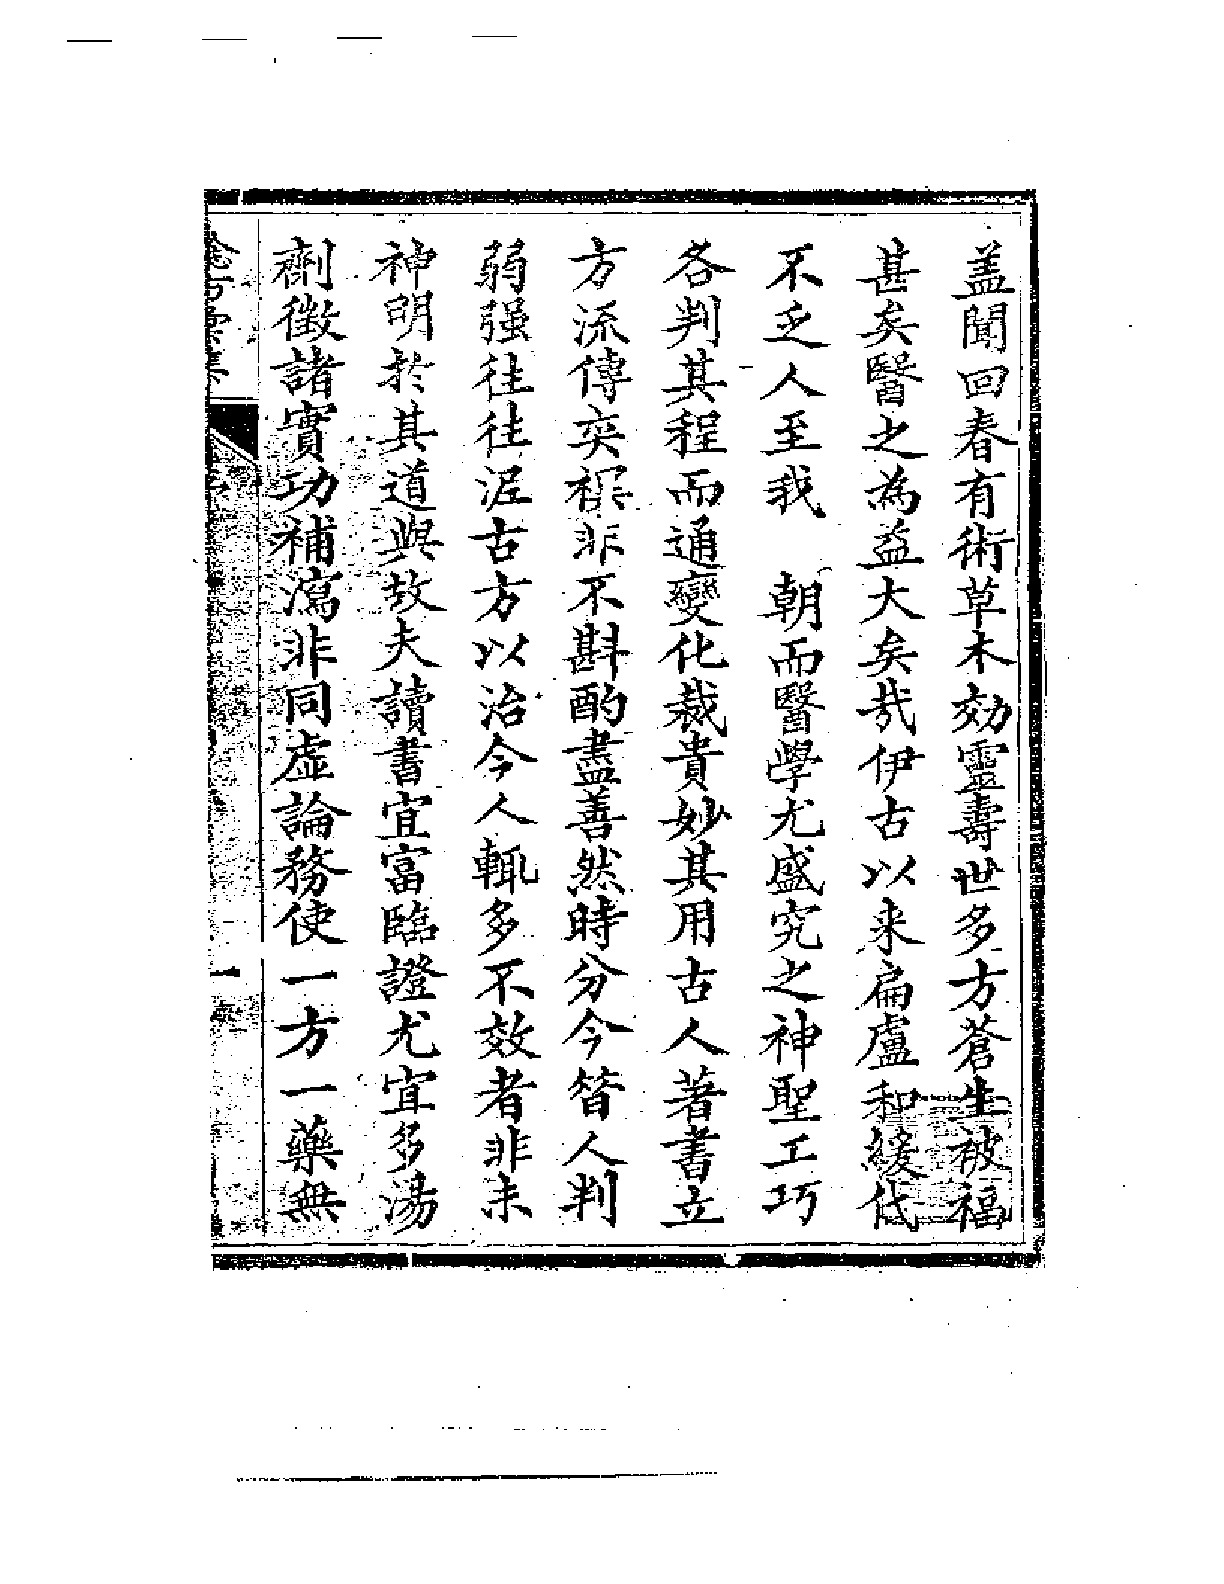 盖聞回春有術草木効靈壽世多方蒼生被福
甚矣醫之為益大矣哉伊古以来扁盧和緩代
不乏人至我　朝而醫學尤盛究之神聖工巧
各判其程而通變化裁貴妙其用古人著書立
方流傳奕禩非不斟酌盡善然時分今昔人判
弱强往往泥古方以治今人輒多不效者非未
神明於其道與故夫讀書宜富臨證尤宜多湯
劑徵諸實功補瀉非同虛論務使一方一藥無